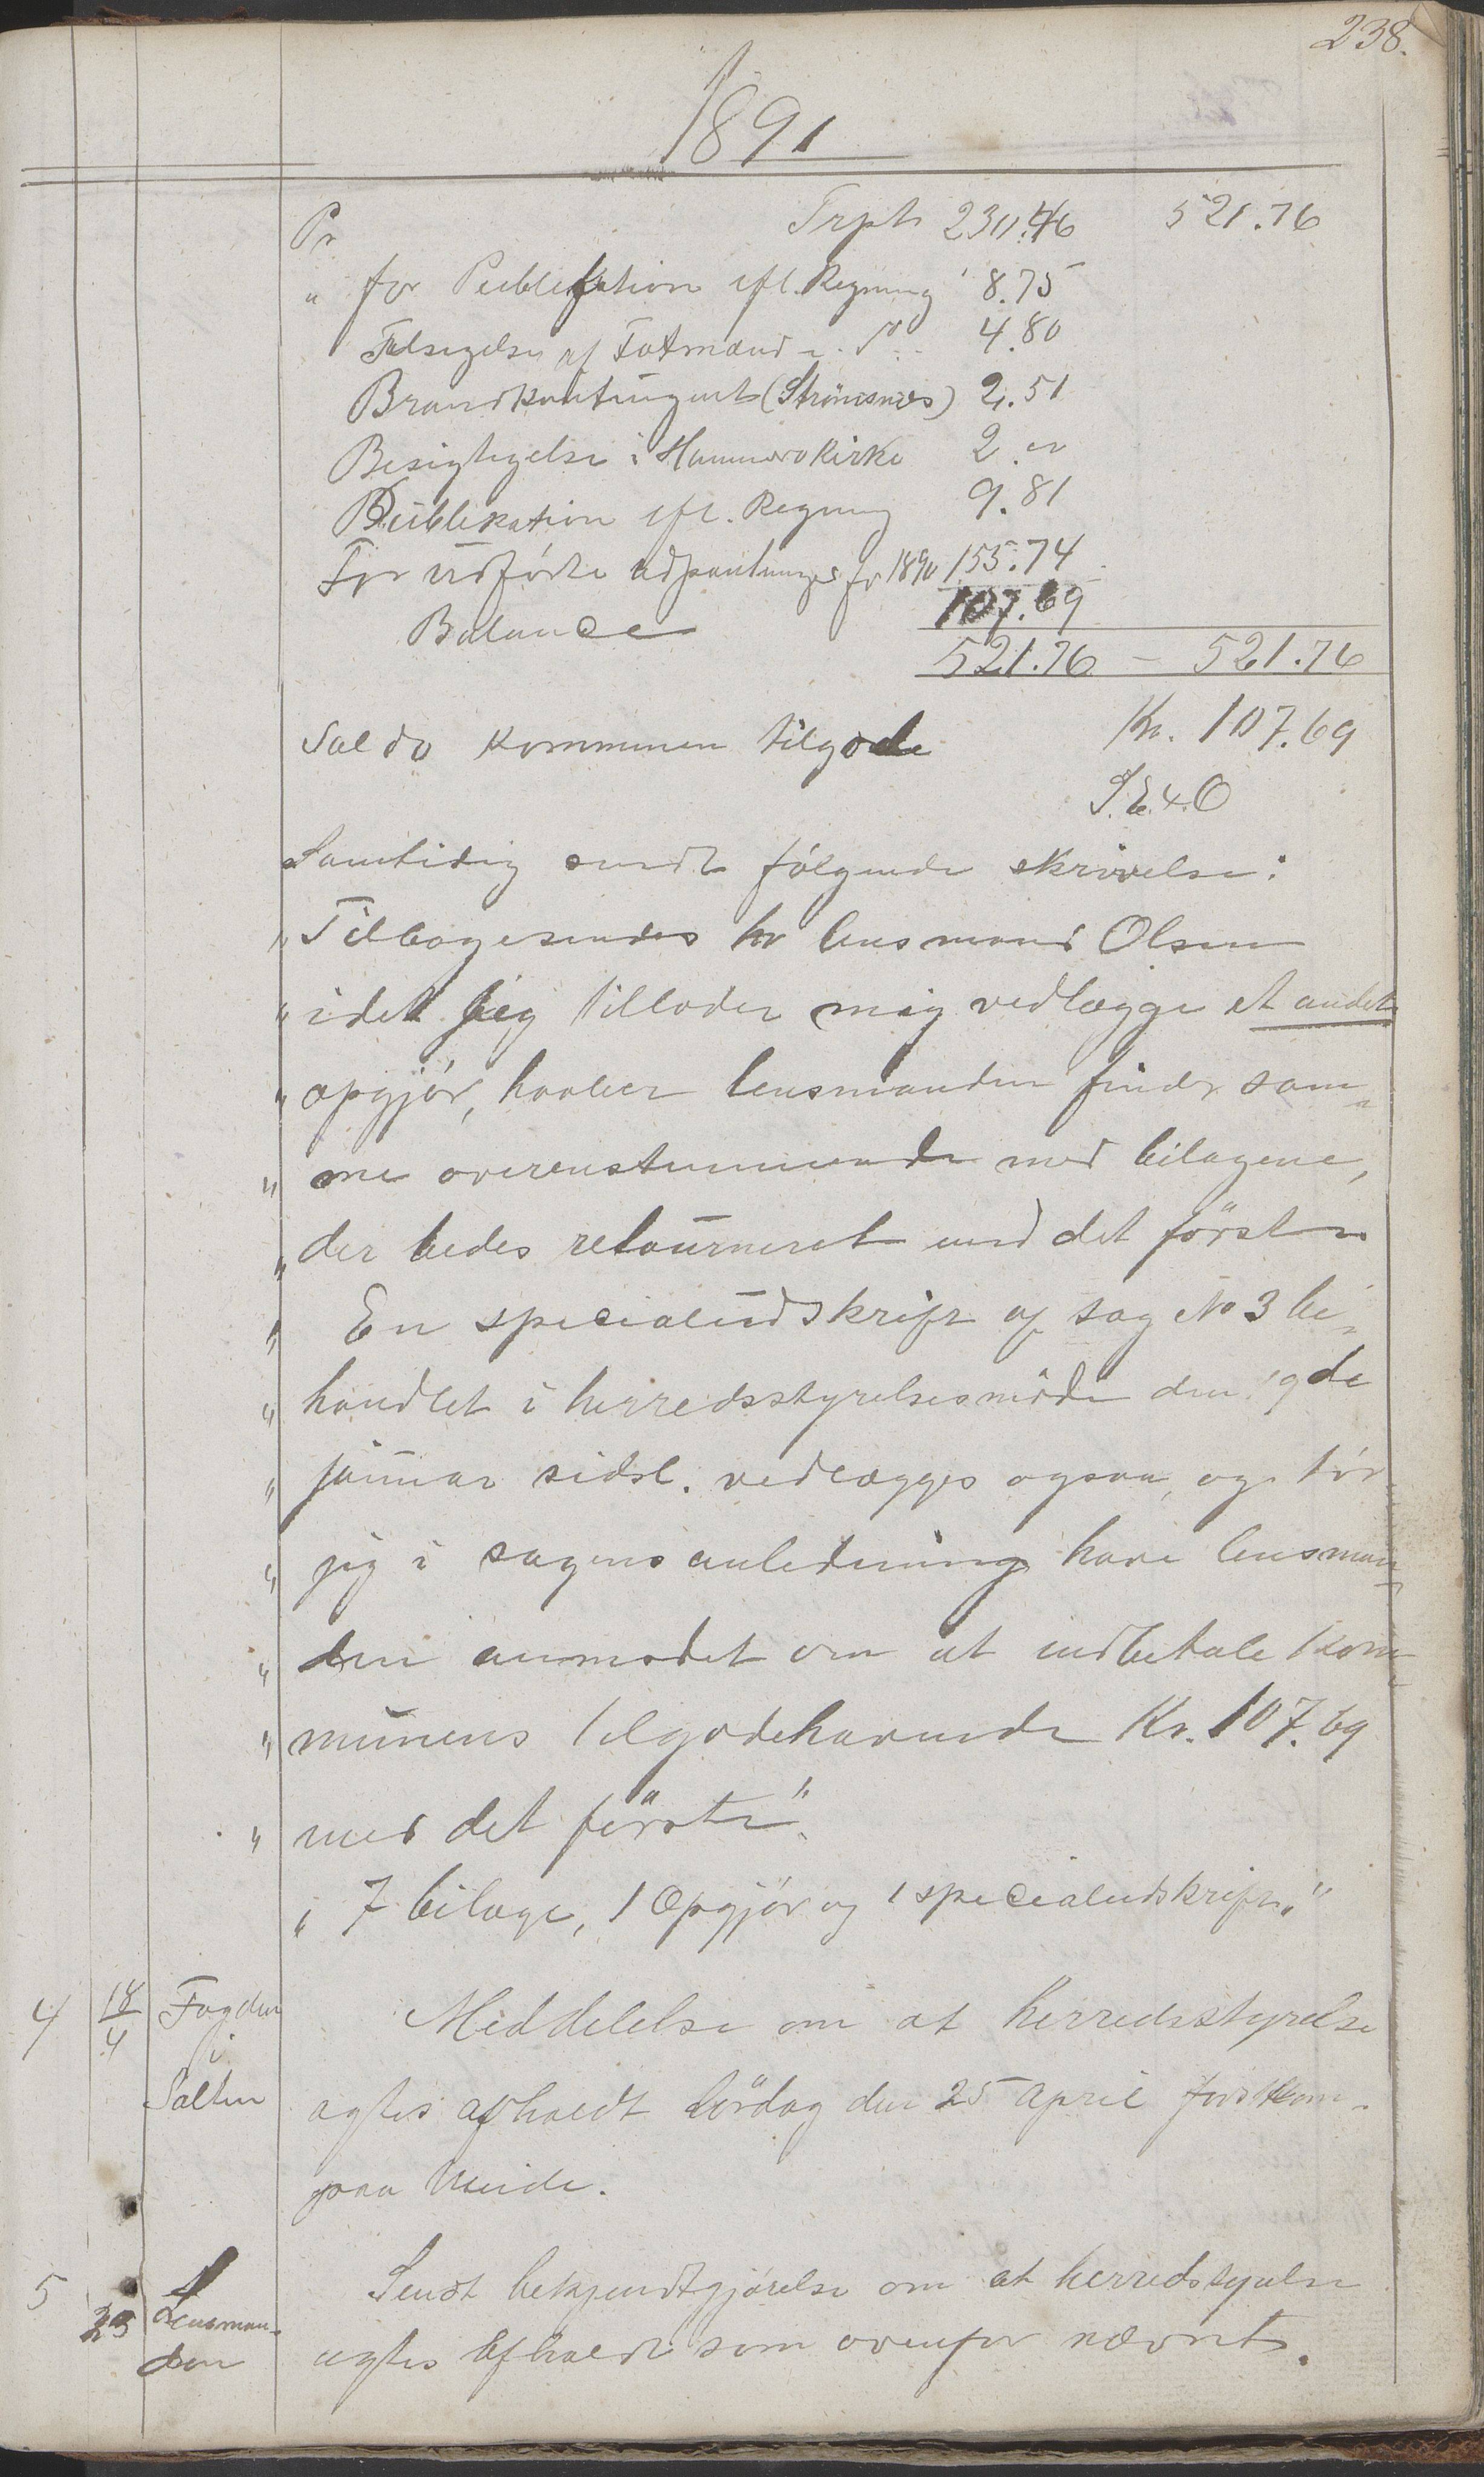 238.
1891
Pr Trpt 230.46 521.76
" for Publikation efl. Regning 8.75
Fælsigelse af Fatmænd 4.80
Brandkontingent (Strömsnes) 2.51
Besigtigelse i Hammerø Kirke 2 "
Publikation efl. Regning 9.81
For udførte udpantninger for 1890 155.74
Balance 107.69
521.76 - 521.76
Saldo kommunen tilgode Kr. 107.69
S. E. & O
Samtidig sendt følgende skrivelse:
" Tilbagesendes hr lensmand Olsen
" idet jeg tillader mig vedlægge et andet
" opgjør, hvoller lensmanden finder sam-
" me overenstemmende med bilagene,
" der bedes retourneret med det förste
" En specialudskrift af sag No 3 be-
" handlet i herredsstyrelsesmøde den 19de
" januar sidstl. vedlægges ogsaa, og tør
" jeg i sagens anledning have lensman-
" den anmodet om at indbetale kom-
" munens tilgodehavende Kr. 107.69
" med det förste".
" 7 bilage, 1 Opgjör og 1 specialudskrift."
4 18/4 Fogden i Salten
Meddelelse om at herredsstyrelse
agtes afholdt lördag den 25 april förstkom-
paa Meide.
5 23 Lensman-
den
Sendt bekjendtgjørelse om at herredstyrelse
agtes afholdt som ovenfor nævnt.